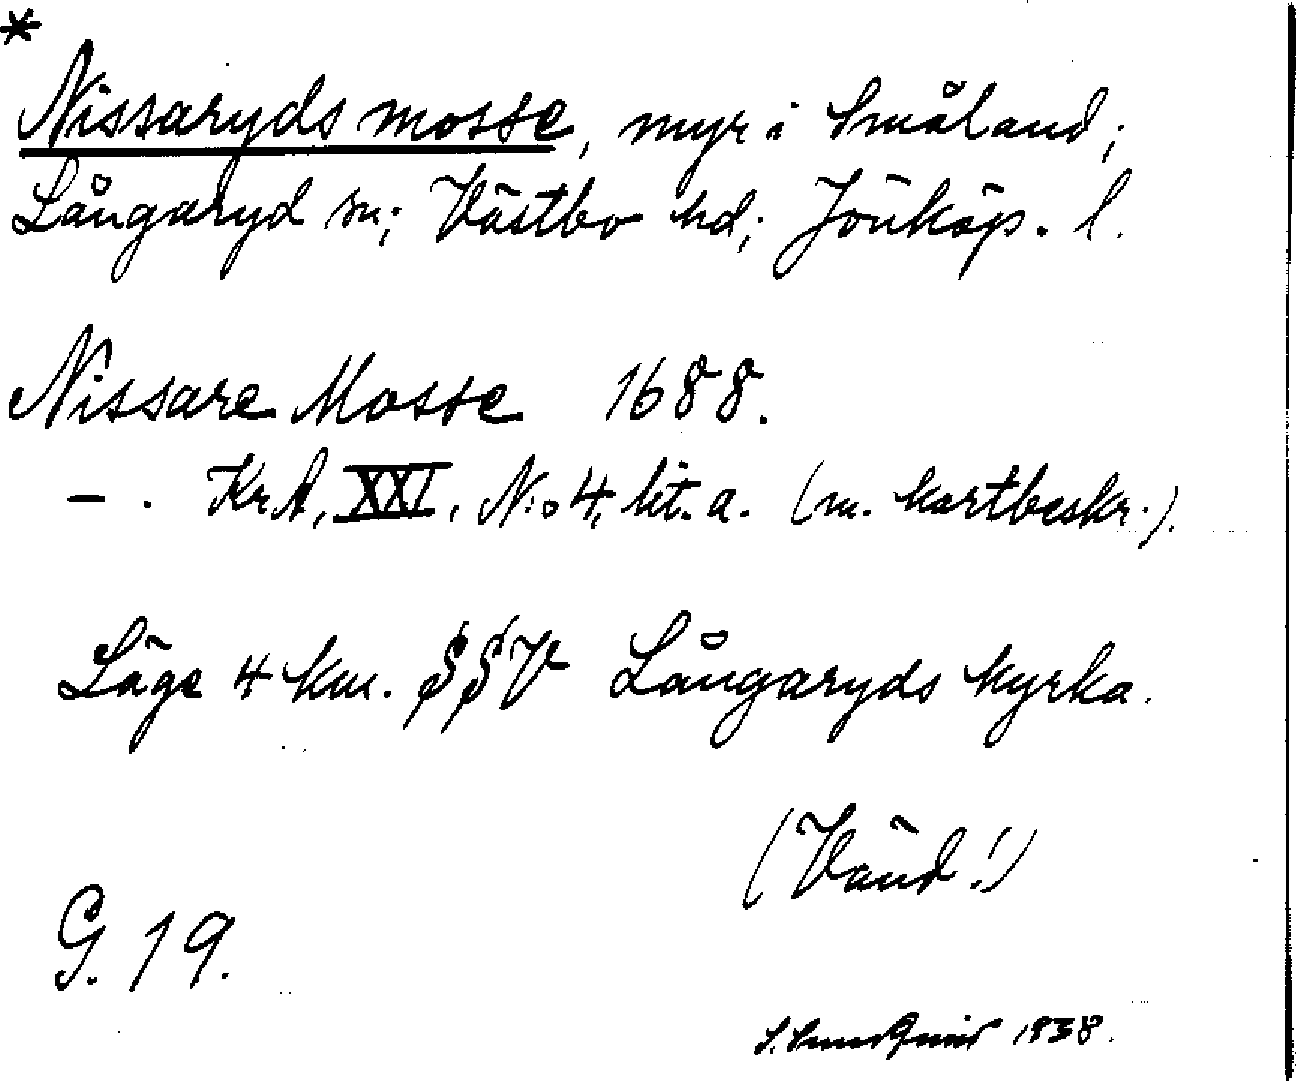 *
Nissaryds mosse, myr i Småland;
Långaryd sn; Västbo hd; Jönköp. l.
Nissare Mosse 1688.
— . KrA, XXI, N:o 4, lit. a. (m. kartbeskr.).
Läge 4 km. SSV Långaryds kyrka.
(Vänd!)
G. 19.
1938.